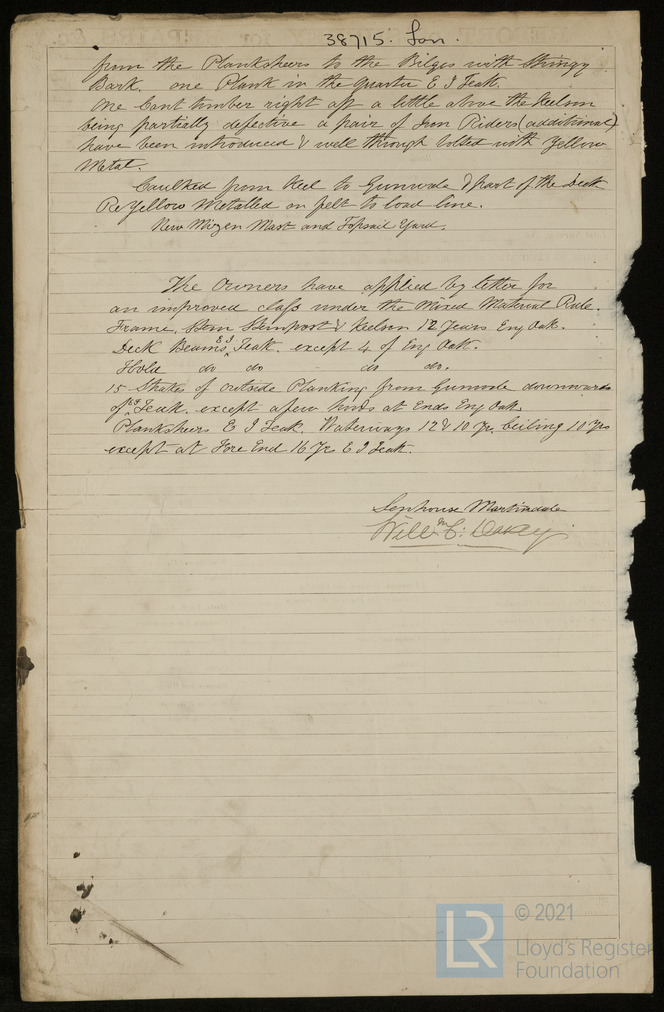 38715. Lon.
from the Planksheers to the Bilges with Stringy
Bark, one Plank in the Quarter E I Teak.
One Cant timber right aft a little above the Keelson
being partially defective a pair of Iron Riders (additional)
have been introduced & well through bolted with Yellow
Metal.
Caulked from Keel to Gunwale & part of the Deck
Re Yellow Metalled on felt to load line.
New Mizen Mast and Topsail Yard.
The Owners have applied by letter for
an improved class under the Mixed Material Rule.
Frame, Stem Sternpost & Keelson 12 Years Eng Oak.
Deck Beams E I Teak. except 4 of Eng Oak.
Hold do do do do.
15 Strakes of outside Planking from Gunwale downwards
of E I Teak. except a few hoods at Ends Eng Oak
Planksheers E I Teak. Waterways 12 & 10 Yr. Ceiling 10 Yrs
except at Fore End 16 Yrs E I Teak.
Senhouse Martindale
Willm C:
LR
© 2021
Lloyd's Register
Foundation